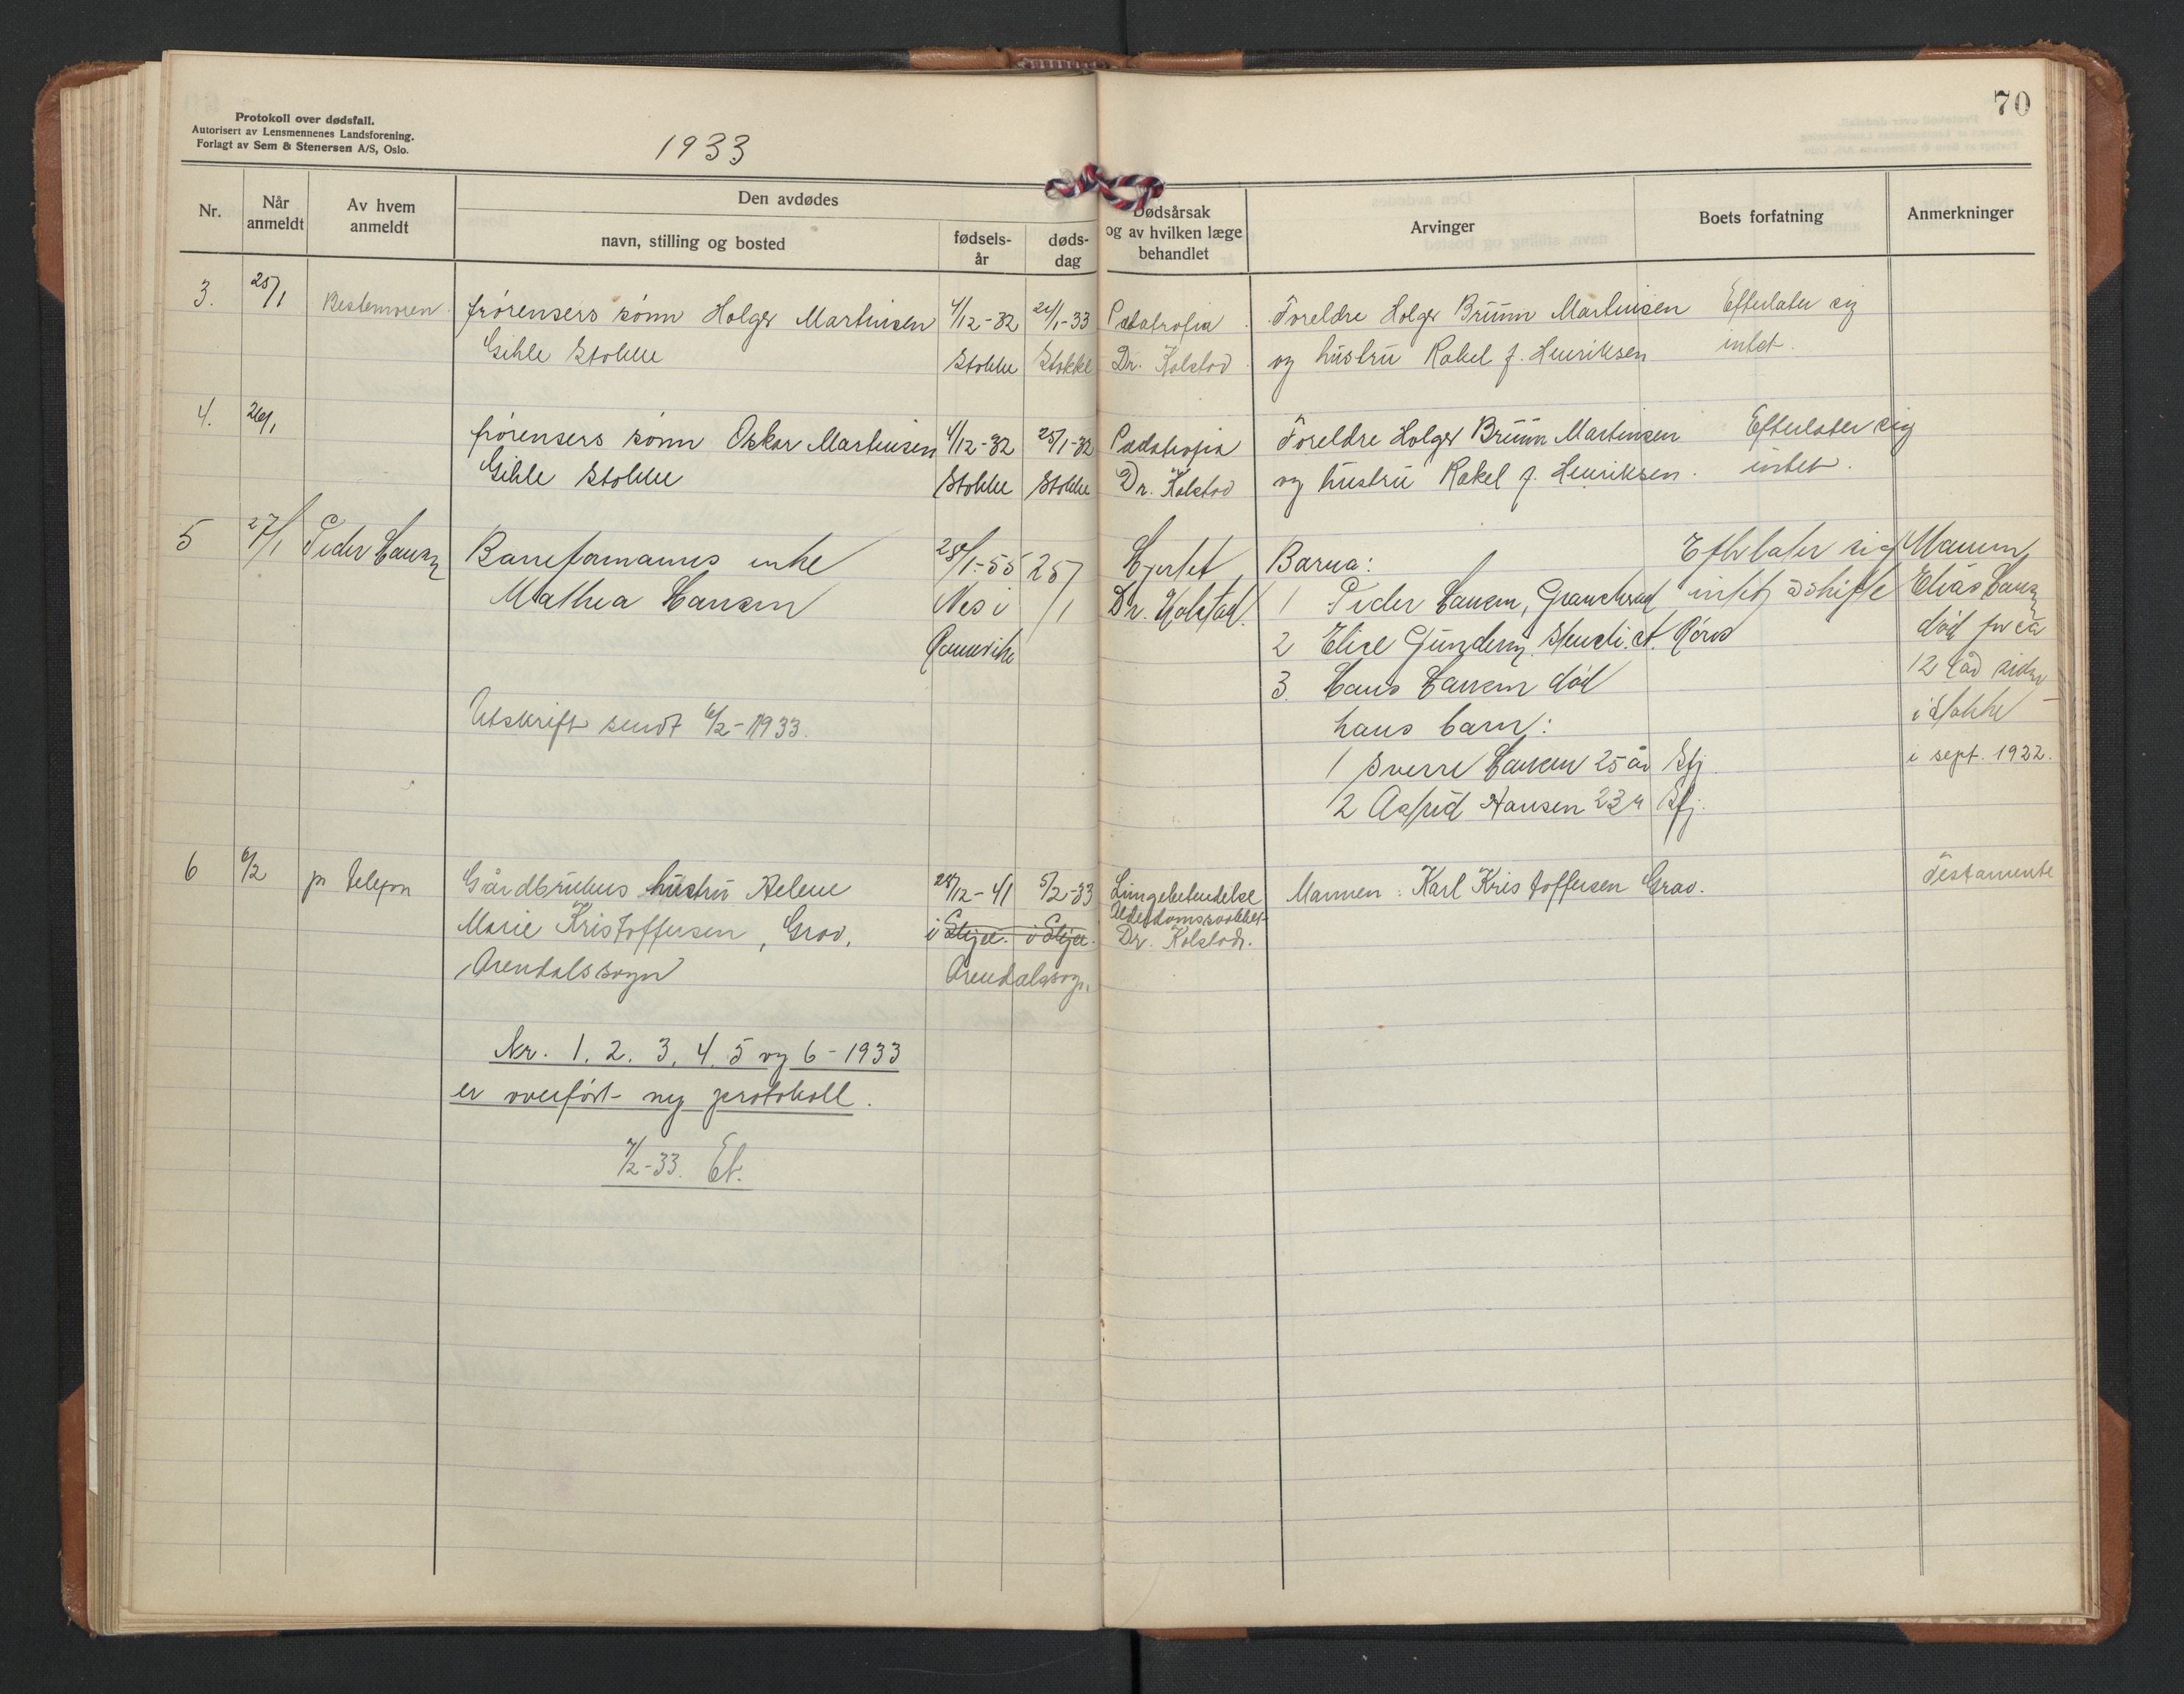 70
Protokoll over dødsfall.
Autorisert av Lensmennenes Landsforening.
Forlagt av Sem & Stenersen A/S, Oslo.
1933
Nr.
Når anmeldt
Av hvem anmeldt
Den avdødes
navn, stilling og bosted
fødsels-år
døds-dag
Dødsårsak
og av hvilken læge
behandlet
Arvinger
Boets forfatning
Anmerkninger
3. 25/1 Bestemoren frørensers sønn Holger Martinsen 4/12-32 24/1-33 Pædatrofia Foreldre Holger Brünn Martinsen Efterlater sig
Gihle Stokke Stokke Stokke Dr. Kolstad og hustru Rakel f. Henriksen intet.
4. 26/1 frørensers sønn Oskar Martinsen 4/12-32 25/1-32 Pædatrofia Foreldre Holger Brünn Martinsen Efterlater sig
Gihle Stokke Stokke Stokke Dr. Kolstad og hustru Rakel f. Henriksen. intet.
5 27/1 Peder Hansen enke 28/1-55 25/1 Hjertet Barna: Efterlater sig Mannen
Mathea Hansen Nes i Dr. Kolstad. 1 Peder Hansen, intet Elias Hansen
Ramnes 2 Elise Gundersen død for ca
3. Hans Hansen død 12 år siden
Utskrift sendt 6/2-1933. hans barn: i Stokke
1 Sverre Hansen 25 år Sfj. i sept. 1922.
2 Astrid Hansen 23 " Sfj.
6 6/2 pr telefon Gårdbrukers hustru Helene 28/12-41 5/2-33 Lungebetendelse Mannen: Karl Kristoffersen Grav. Testamente
Alderdomssvakhet
Marie Kristoffersen, Grav, i Skjee. i Skjee. Dr. Kolstad.
Arendalssogn Arendalssogn.
Nr. 1. 2. 3. 4. 5 og 6-1933
er overført ny protokoll.
7/2-33.